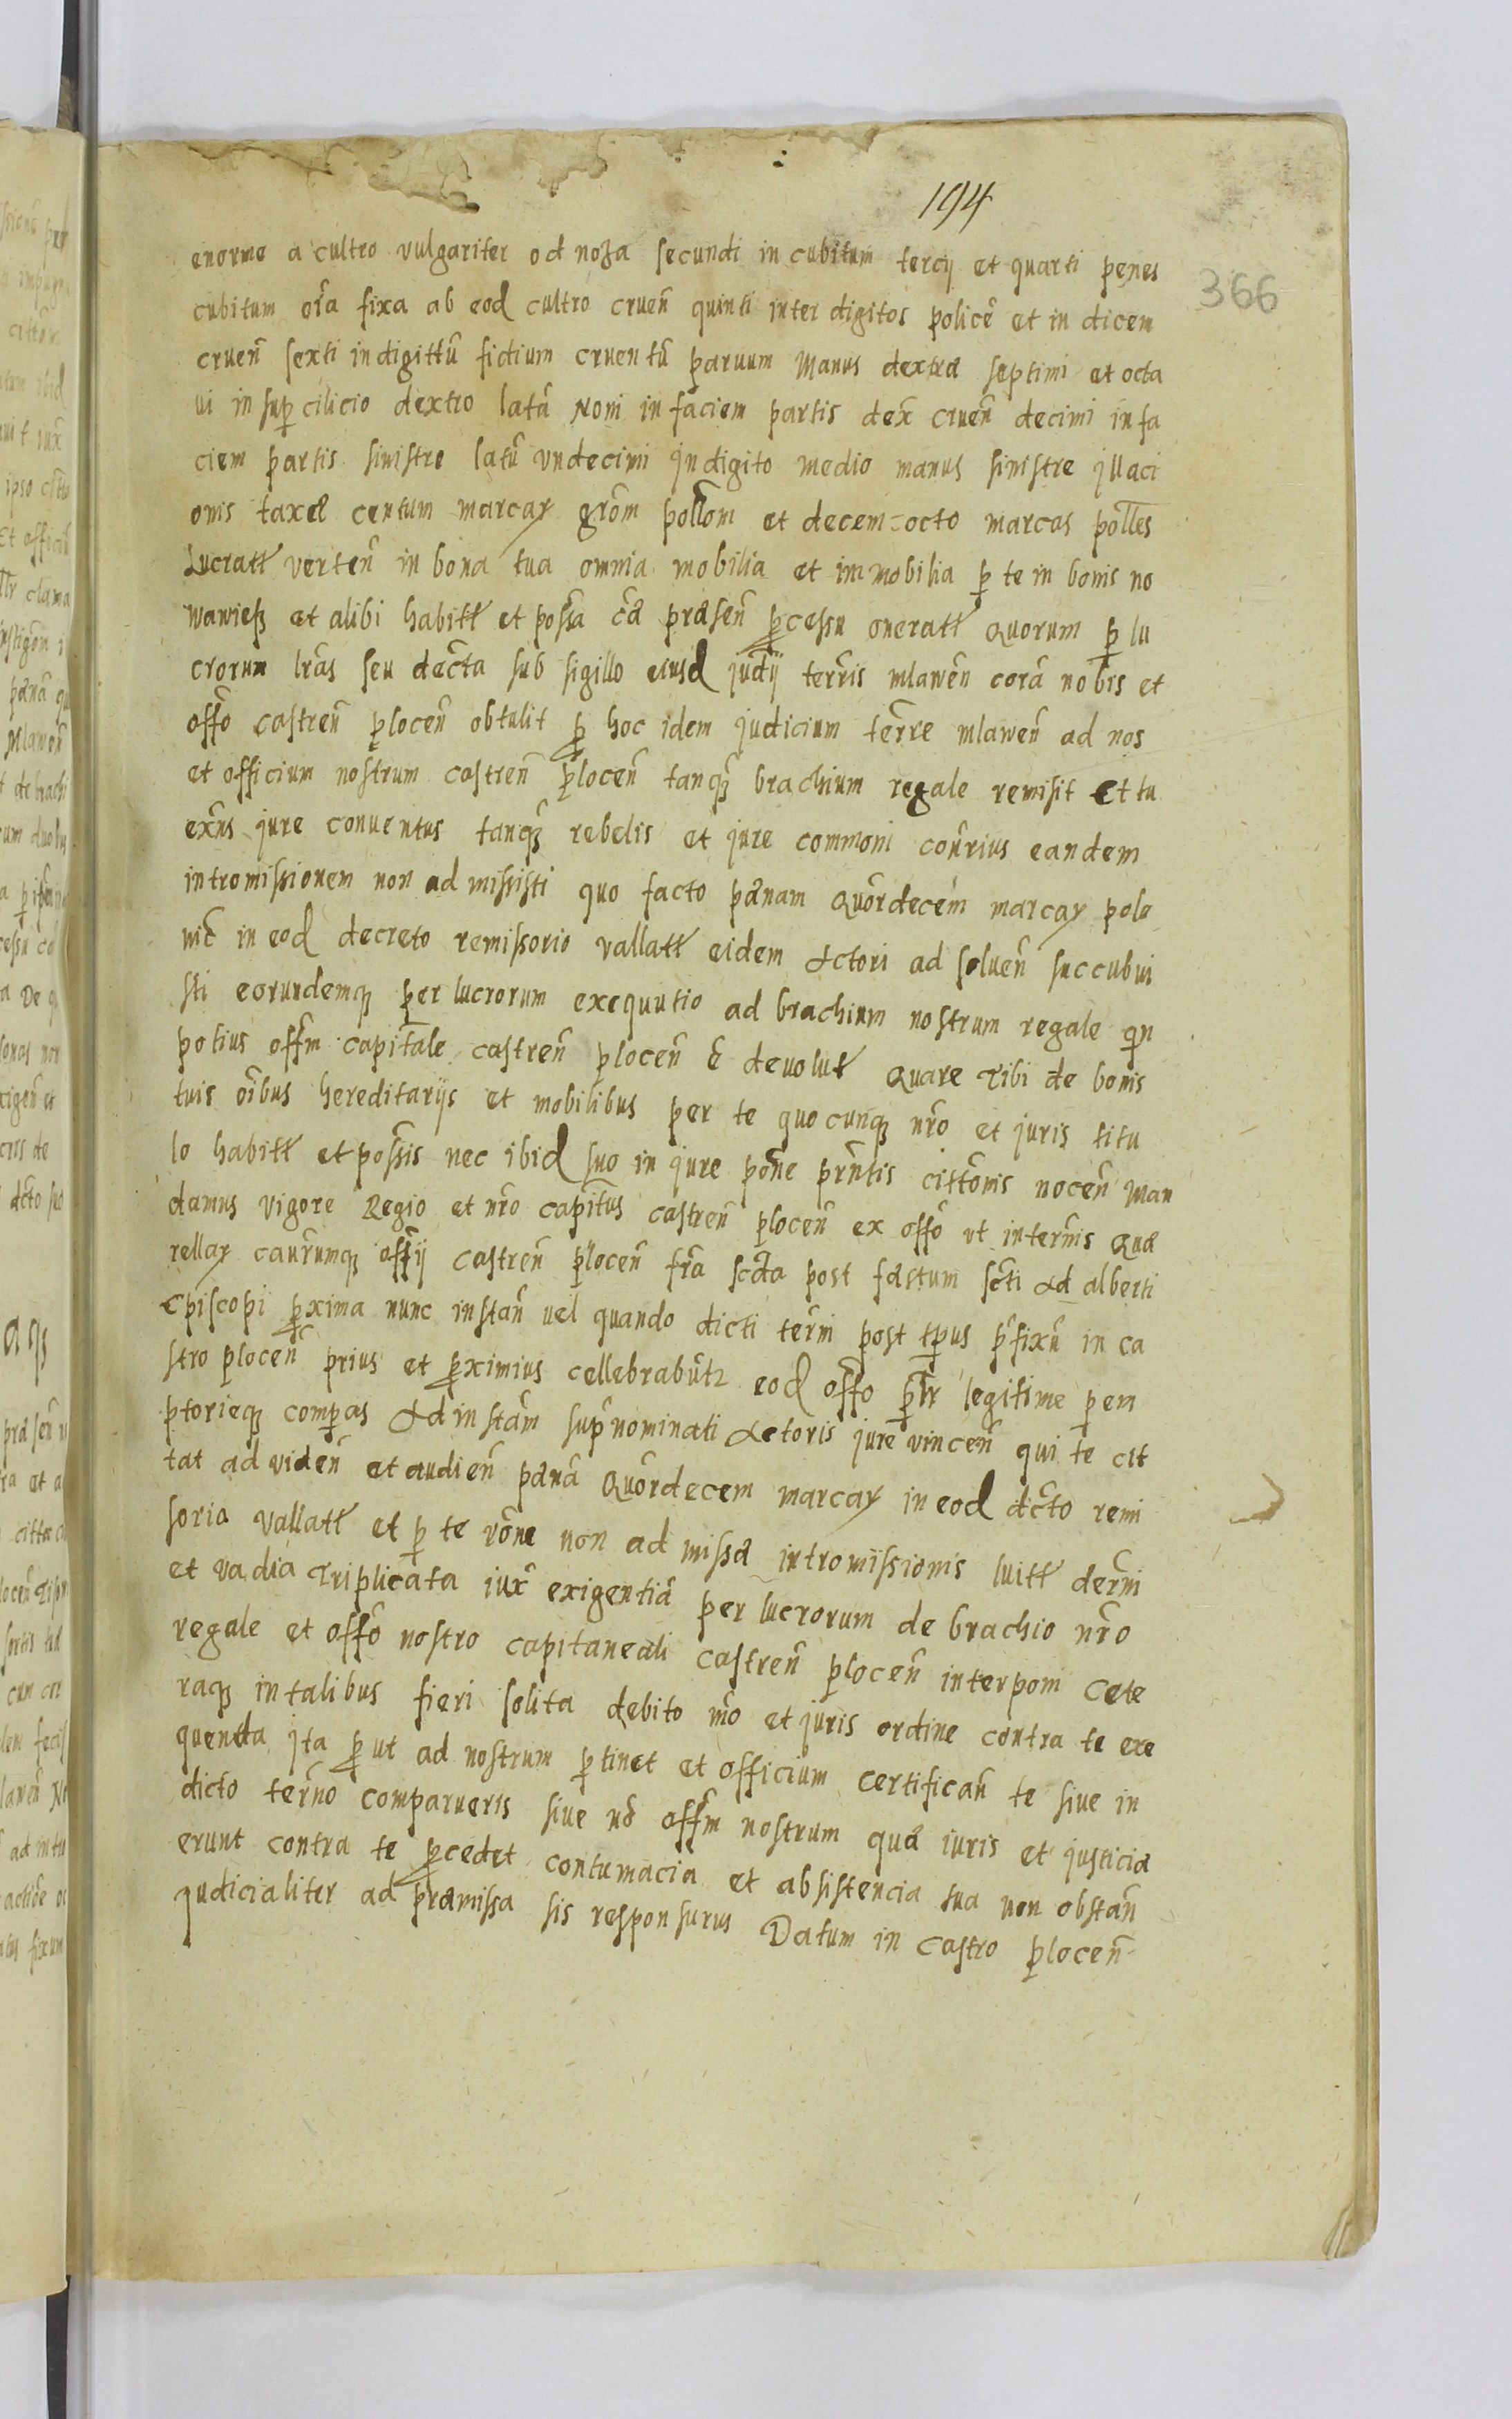 194
366
enorme a cultro vulgariter od noza secundi in cubitum tercij et quarti penes
cubitum oĩa fixa ab eod cultro cruen̄ quinti inter digitos policẽ et in dicem
cruen̄ sexti in digittũ fidium cruentũ paruum Manus dextræ septimi et octa
ui in sup cilicio dextro latũ Noni in faciem partis dex̃ cruen̄ decimi in fa
ciem partis sinistre latũ vndecimi in digito medio manus sinistre illaci
onis taxæ centum marcaꝝ grõm pollõm et decem=octo marcas polles
Lucratt verten̄ in bona tua omnia mobilia et immobilia ꝑ te in bonis no
wawiess et alibi habitt et possa cã præsen̄ ꝓcessu oneratt Quorum ꝑ lu
crorum lr̃as seu decta sub sigillo eiusd judij terr̃is mlawen̄ corã nobis et
offõ castren̄ plocen̄ obtulit ꝓ hoc idem judicium terr̃e mlawen̄ ad nos
et officium nostrum castren̄ plocen̄ tanqꝫ brachium regale remisit Et tu
exñs jure conuentus tanqꝫ rebelis et jure commoni conr̃ius eandem
intromissionem non admissisti quo facto pænam Quordecem marcaꝝ polo
nic̃ in eod decreto remissorio vallatt eidem Actori ad soluen̄ succubui
sti eorundemqꝫ per lucrorum exequutio ad brachium nostrum regale qn
potius offm capitale castren̄ plocen̄ ẽ deuolut Quare Tibi de bonis
tuis oĩbus hereditarijs et mobilibus per te quocunqꝫ mr̃o et juris titu
lo habitt et possis nec ibid suo in jure põne prñtis cittõnis nocen̄ Man
damus vigore Regio et nr̃o capitus castren̄ plocen̄ ex offõ vt in term̃is Quæ
rellaꝝ caur̃umqꝫ offij castren̄ plocen̄ fr̃a scda post fæstum scti Ad alberti
Episcopi ꝓxima nunc instan̄ uel quando dicti term̃i post tp̃us p̃fixũ in ca
stro plocen̄ prius et ꝓximius cellebrabũtr eod offõ pr̃ltr legitime perem
ptorieqꝫ compas Ad instãm sup̃nominati Actoris jure vincen̄ qui te cit
tat ad viden̄ et audien̄ pænã Quordecem marcaꝝ in eod dicto remi
soria vallatt et ꝑ te rõne non ad missæ intromissionis luitt der̃ni
et vadia Triplicata iux̃ exigentiã per lucrorum de brachio nr̃o
regale et offõ nostro capitaneali castren̄ plocen̄ interponi Cete
raqꝫ in talibus fieri solita debito mõ et juris ordine contra te exe
quenda jta ꝓ ut ad nostrum ꝑtinet et officium Certifican̄ te siue in
dicto term̃o comparueris siue nõ offm nostrum quæ iuris et justiciæ
erunt contra te ꝓcedet contumacia et absistencia tua non obstan̄
judicialiter ad præmissa sis responsurus Datum in Castro plocen̄